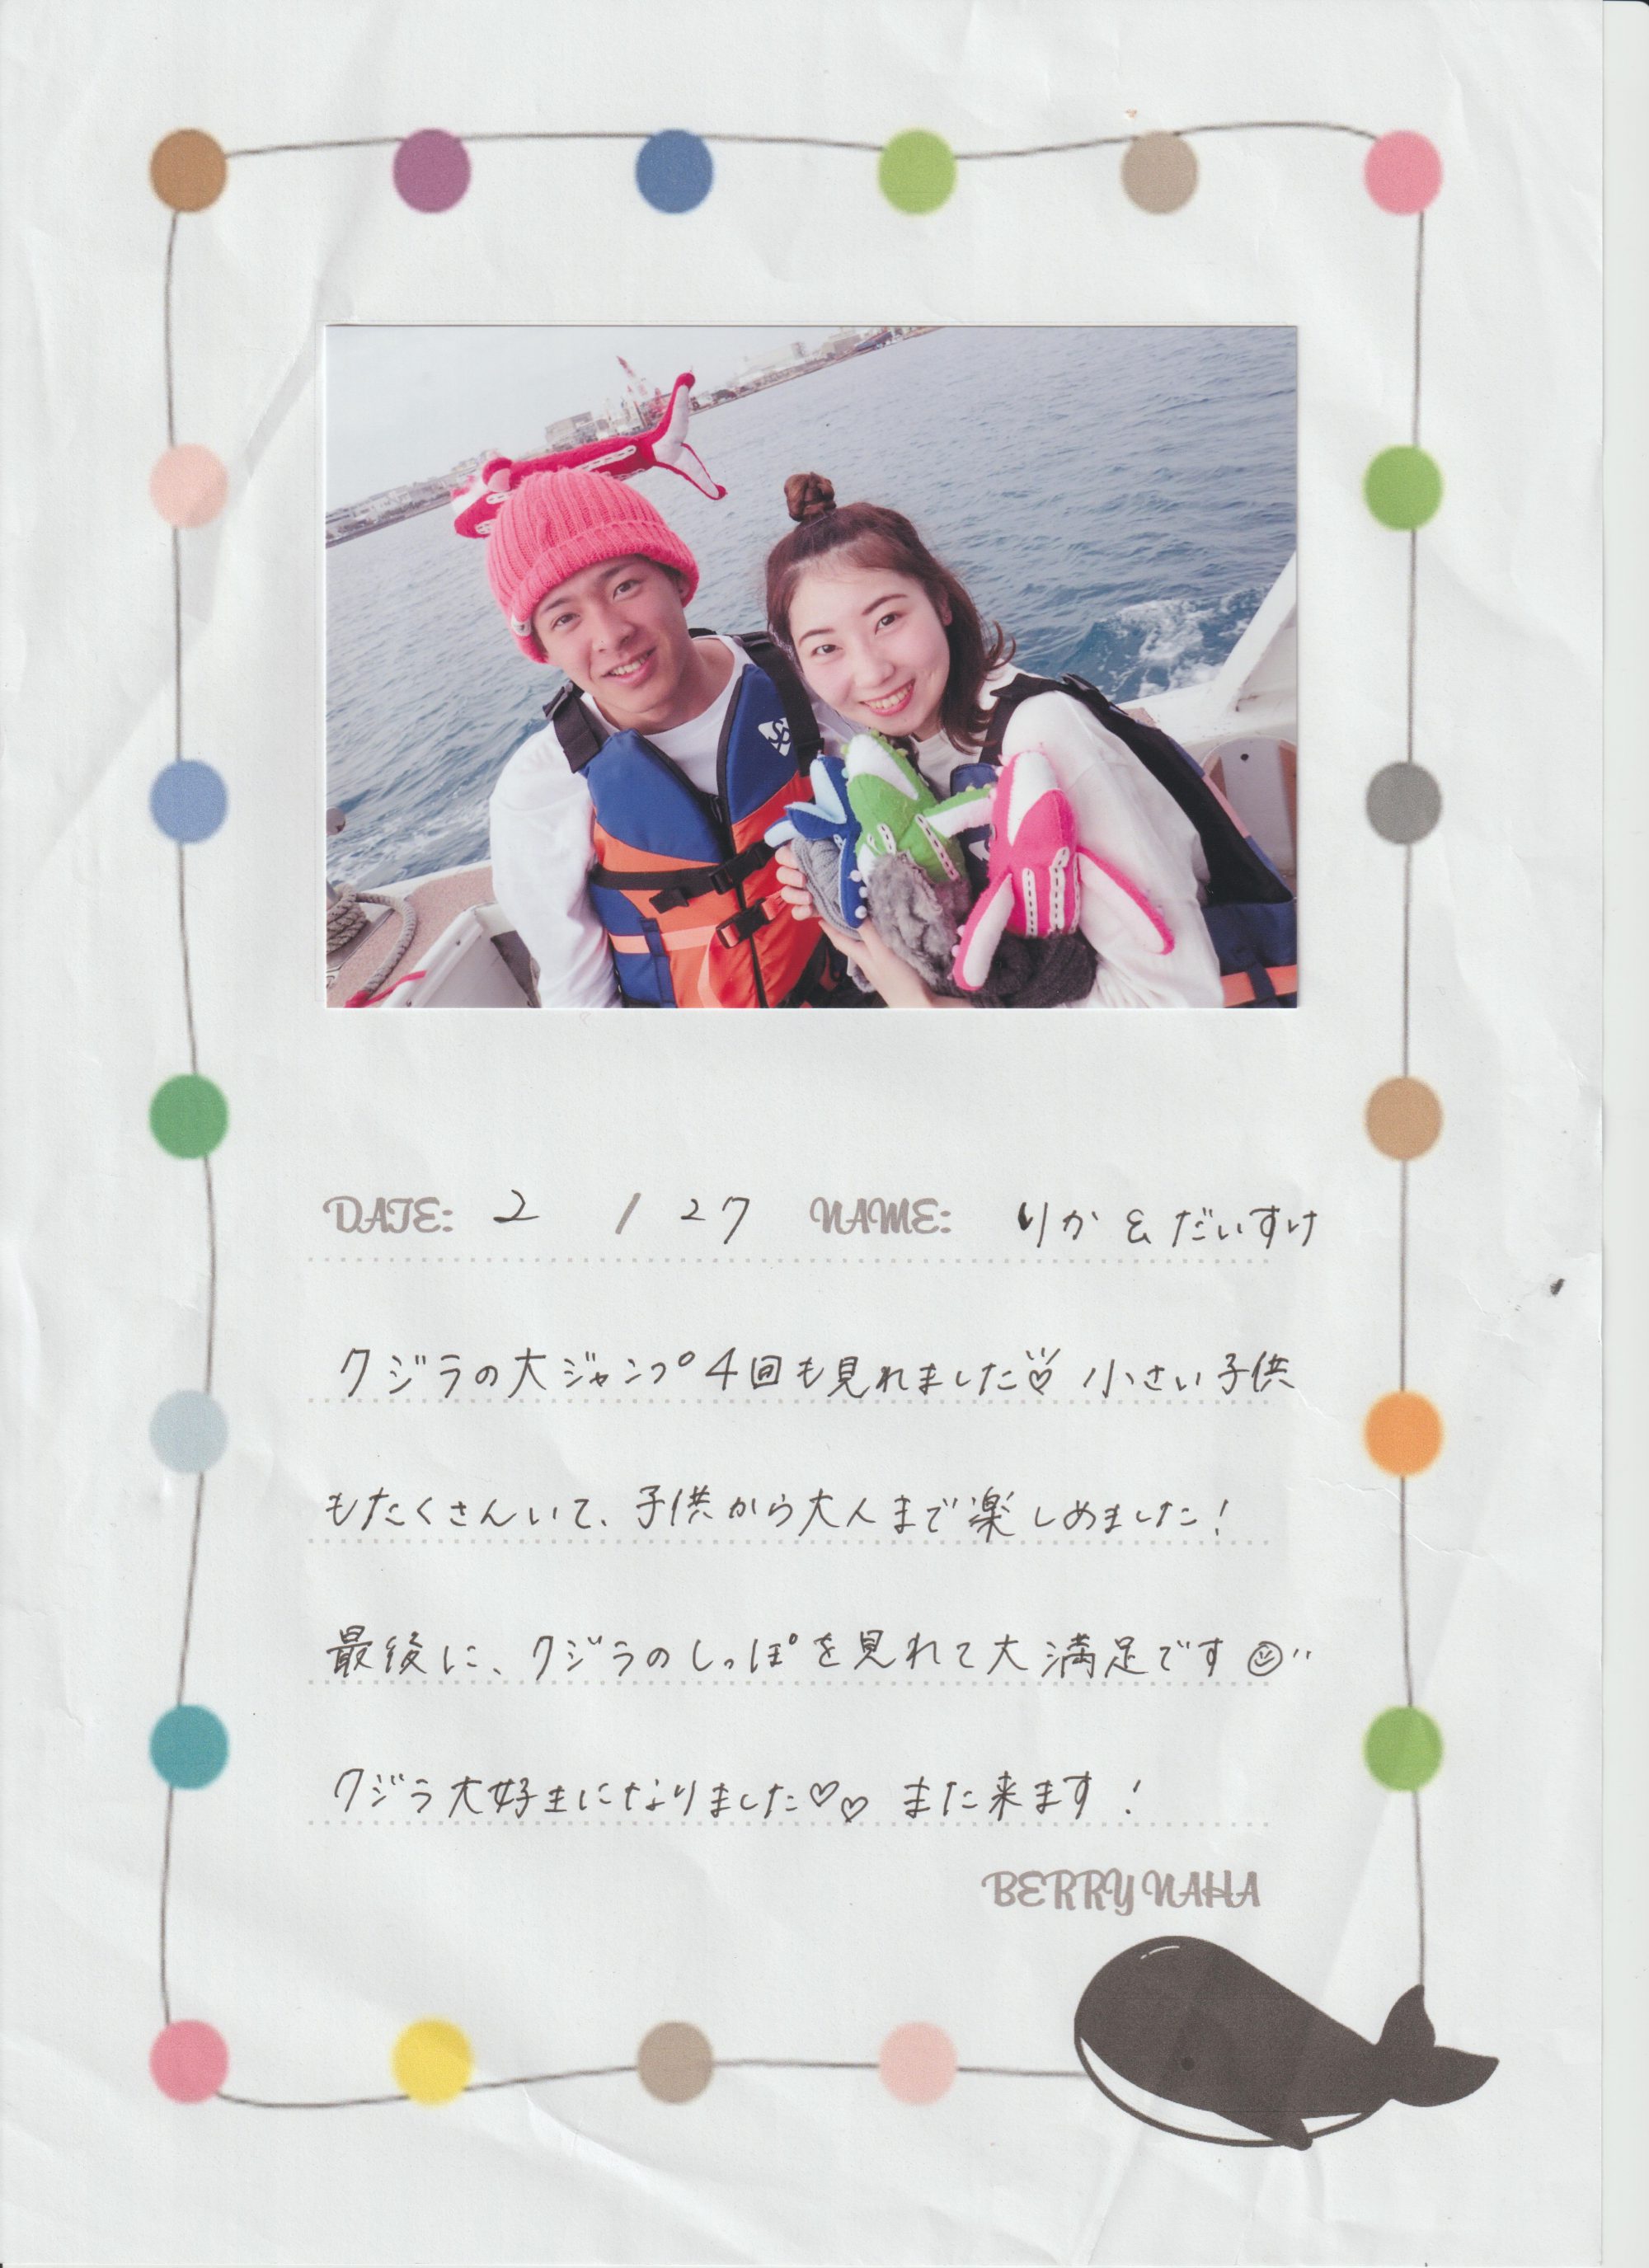 DATE: 2 / 27 NAME: りか & だいすけ
クジラの大ジャンプ4回も見れました♡ 小さい子供
もたくさんいて、子供から大人まで楽しめました!
最後に、クジラのしっぽを見れて大満足です☺
クジラ大好きになりました♡♡ また来ます!
BERRY NAHA